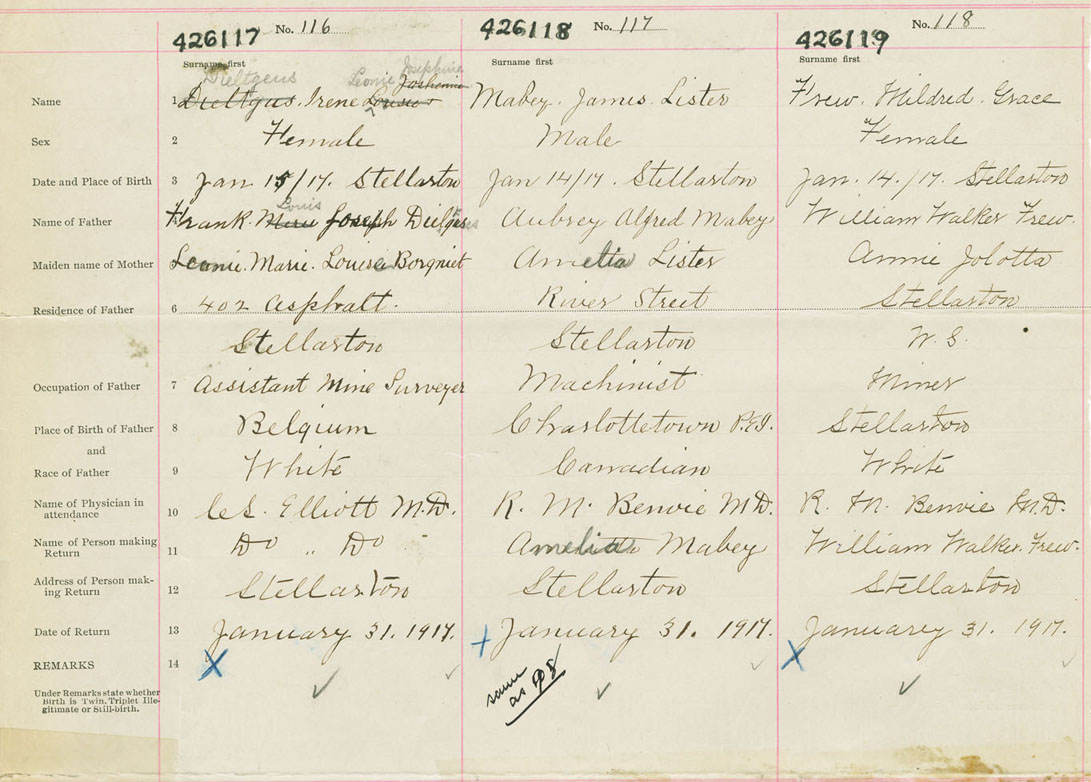 426117 No. 116
426118 No. 117
426119 No. 118
Surname first Surname first Surname first
Dieltgens Leonie Josephine
Josephine
Name 1 Dieltgus. Irene Louise Mabey. James. Lister Frew. Mildred. Grace
Sex 2 Female Male Female
Date and Place of Birth 3 Jan 15/17. Stellarton Jan 14/17. Stellarton Jan. 14./17. Stellarton
Louis
Name of Father Frank Joseph Dieltgens Aubrey Alfred Mabey William Walker Frew.
Maiden name of Mother Leonie. Marie. Louise Borgniet Amelia Lister Annie Jolotta
Residence of Father 6 402 Asphalt. River Street Stellarton
Stellarton Stellarton N.S.
Occupation of Father 7 Assistant Mine Surveyer Machinist Miner
Place of Birth of Father 8 Belgium Charlottetown P.E.I. Stellarton
and
Race of Father 9 White Canadian White
Name of Physician in
attendance 10 C.S. Elliott M.D. R. M. Benvie M.D. R. M. Benvie M.D.
Name of Person making
Return 11 Do " Do Amelia Mabey William Walker. Frew.
Address of Person mak-
ing Return 12 Stellarton Stellarton Stellarton
Date of Return 13 January 31. 1917. January 31. 1917. January 31. 1917.
REMARKS 14 X + X
same
as 98
Under Remarks state whether
Birth is Twin, Triplet Ille-
gitimate or Still-birth.